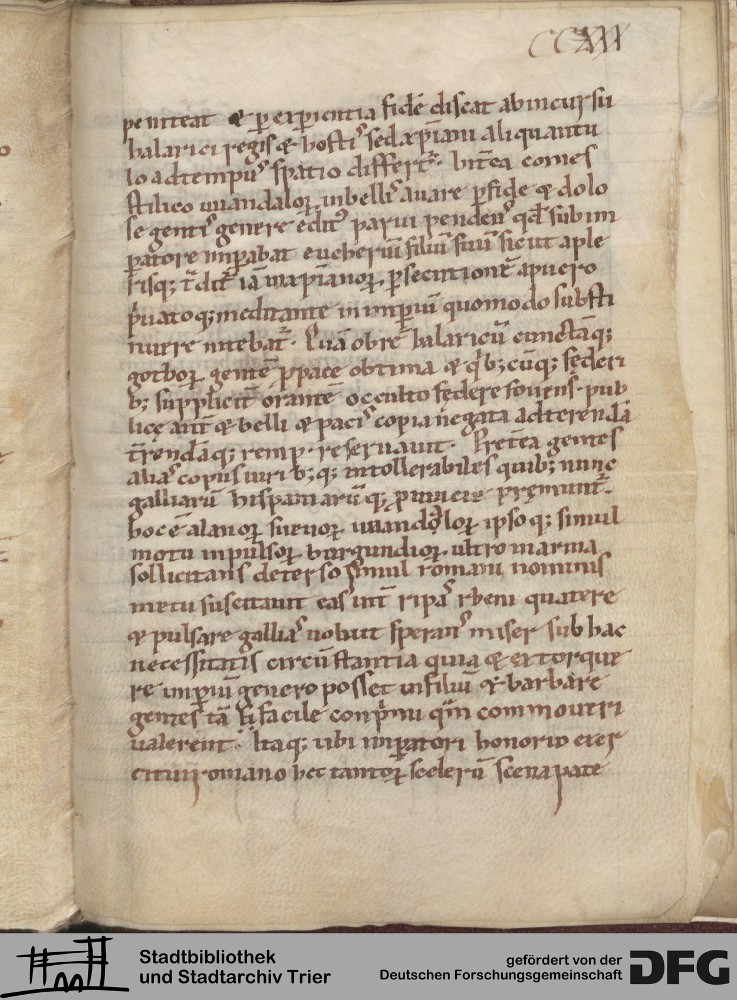 CCXXX
peniteat & p̱ experientia fidē discat ab incursu
halarici regis & hosti⁹ sed xp̄iani aliquantu
lo ad tempu⁹ spatio differt᷑. Int̄ea comes
stilico uuandaloꝝ inbelli⁹ auare p̱fide & dolo
se genti⁹ genere edit⁹ parui penden⁹ qd̄ sub im
p̱atore imp̱abat eucheriū filiū suū sicut a ple
risq; t̄dit᷑ iā in xp̄ianoꝝ p̱secutionē a puero
p̄uatoq; meditante in imp̱iū quomodo substi
tuere nitebat᷑. Quā obrē halaricū cunctāq;
gothoꝝ gentē p̱ pace obtima & q̄b;cūq; sederi
b; supplicit̄ orantē occulto federe fouens. pub
lice aut̄ & belli & paci⁹ copia negata ad terendā
t̄rendāq; rem p. reseruauit. Pret̄ea gentes
alia⁹ copiis uirib;q; intollerabiles quib; nunc
galliarū hispaniarūq; p̱uincie p̱remunt᷑.
hoc ē alanoꝝ sueuoꝝ uuandaloꝝ ipsoq; simul
motu inpulsoꝝ burgundioꝝ ultro in arma
sollicitans deterso simul romani nominis
metu suscitauit eas int̄ ripa⁹ rheni quatere
& pulsare gallia⁹ uoluit speran⁹ miser sub hac
necessitatis circū stantia quia & extorque
re imp̱iū genero posset in filiū & barbare
gentes tā facile conp̄mi q̄m commoueri
ualerent. Itaq; ubi imp̱atori honorio exer
cituiq; romano hec tantoꝝ scelerū scena pate
Stadtbibliothek
und Stadtarchiv Trier
gefördert von der
Deutschen Forschungsgemeinschaft
DFG